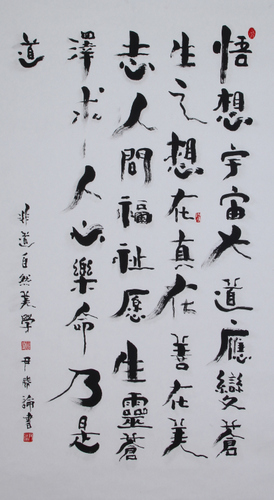 悟想宇宙大道應變蒼
生之想在真在善在美
志人間福祉愿生靈蒼
澤求人心樂命乃是
道
非道自然美學
尹 書